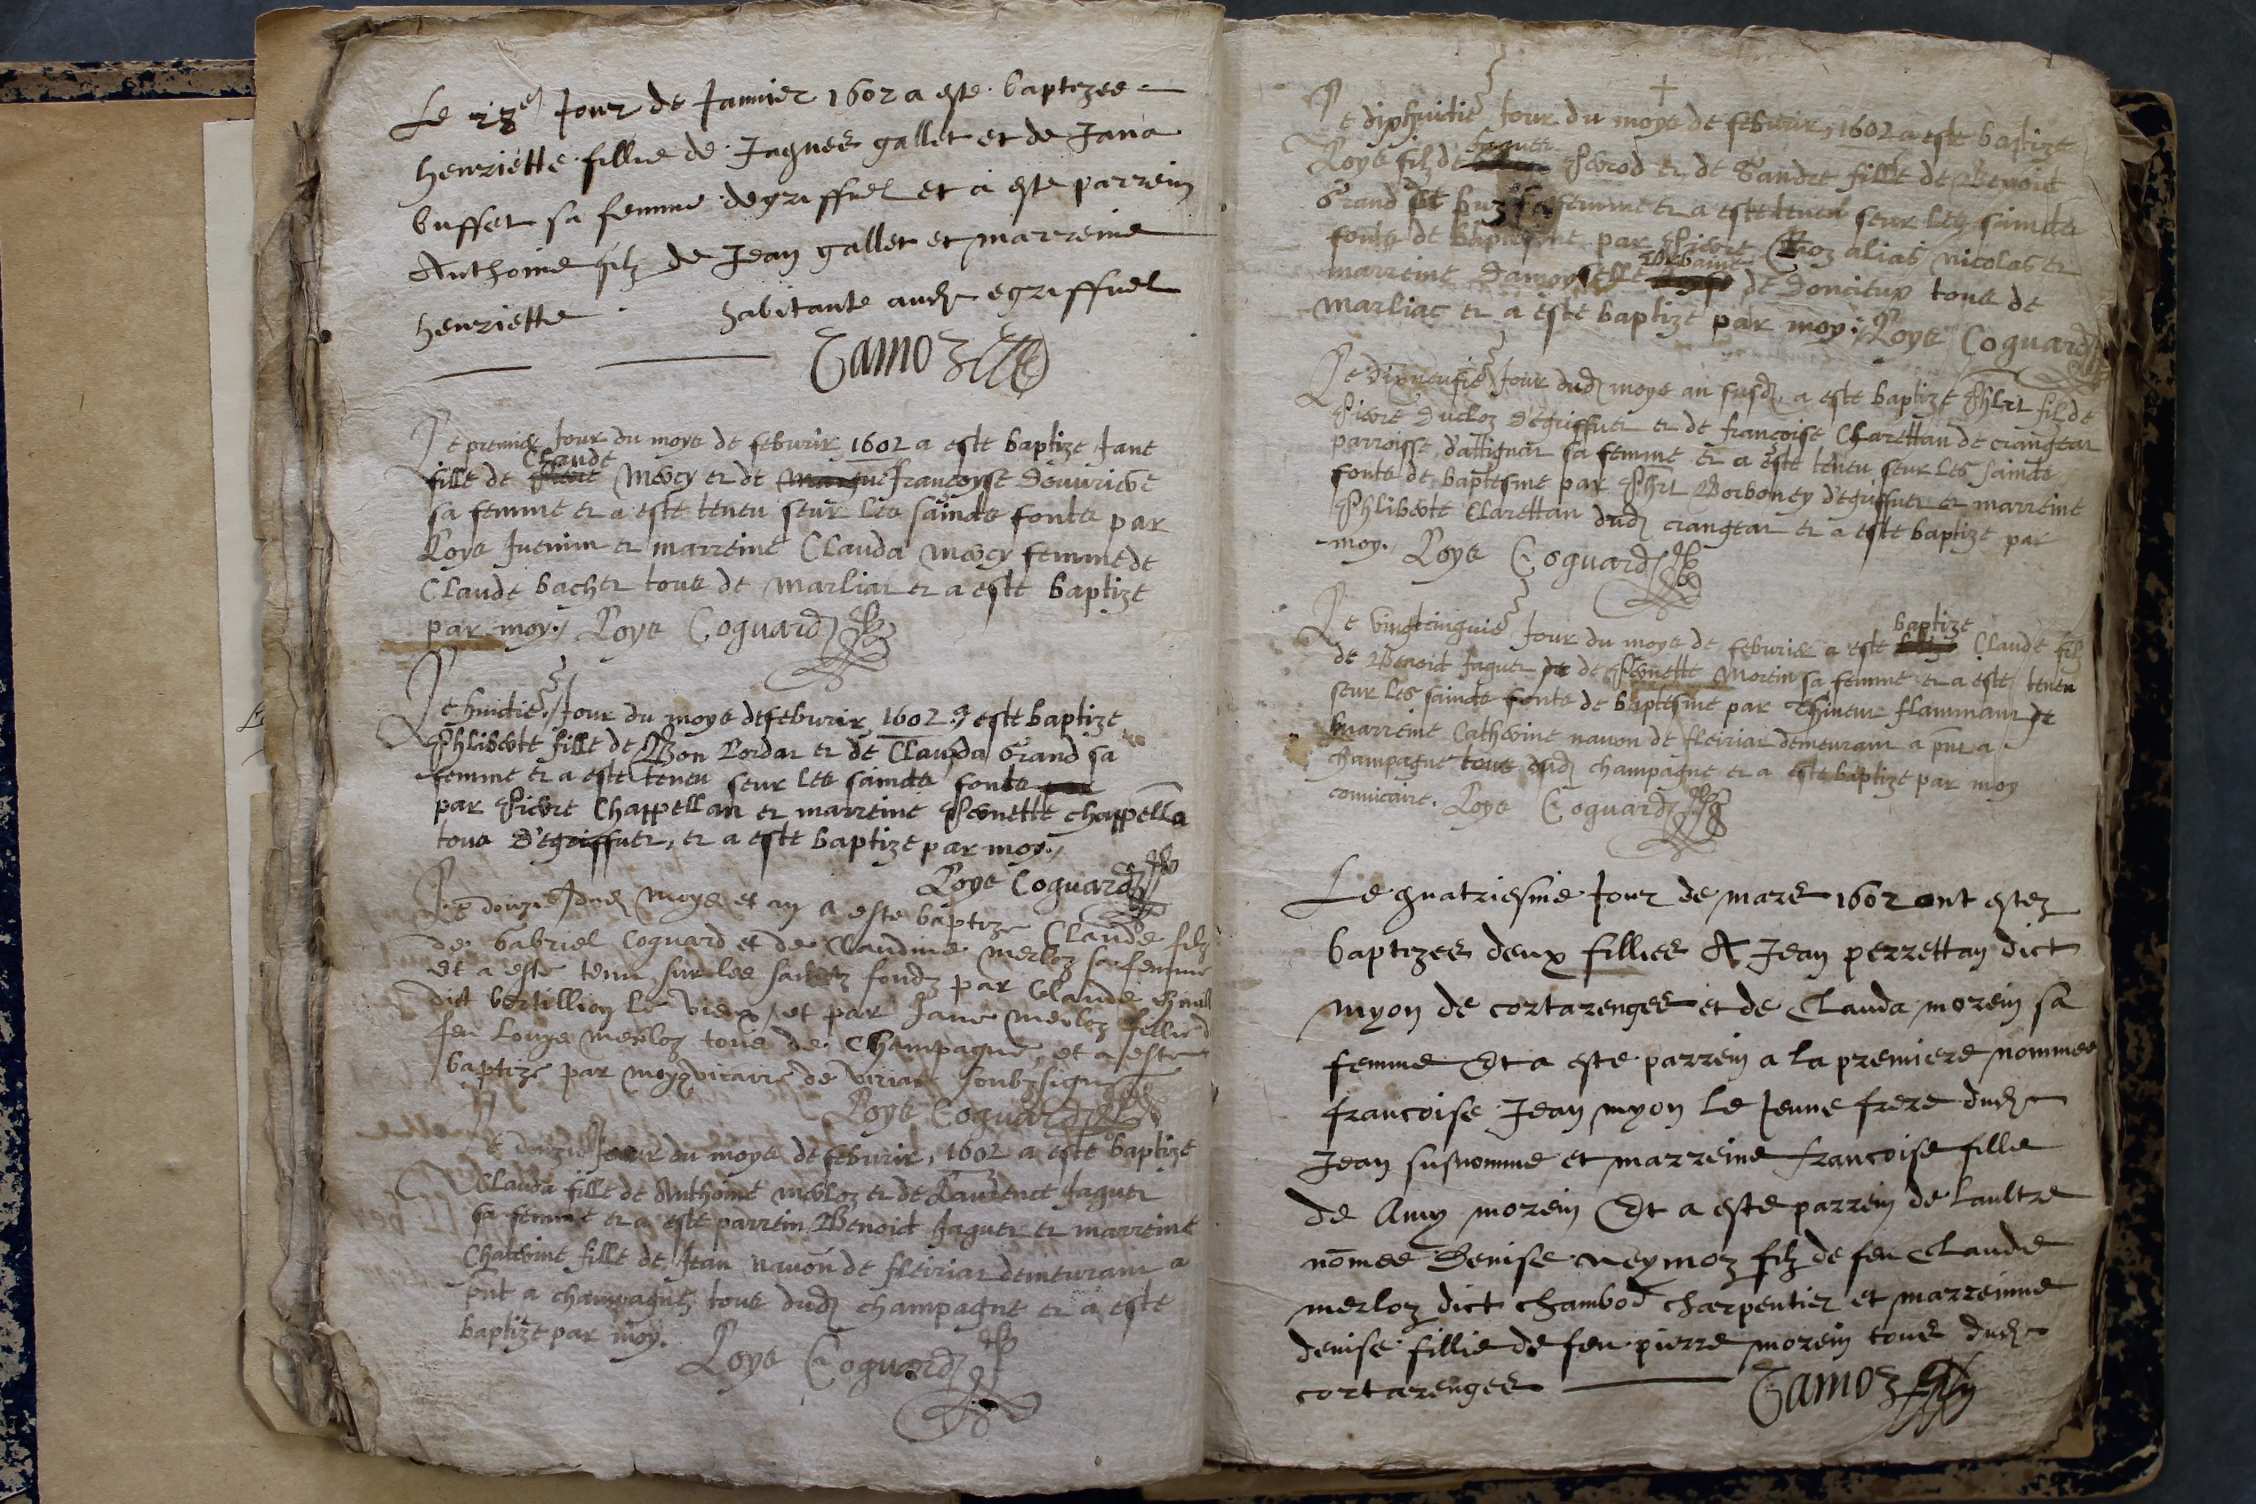 Le 28e Jour de Januier 1602 a este baptezee
henriette fillie de Jaques gallet et de Jana
buffet sa femme degriffuel et a este parrein
Anthoine filz de Jean gallet et marreine
henriette habitante aud egriffuel
Tamoz
Le premier Jour du moys de feburir 1602 a este baptize Jane
Claude
fille de Mercy et de francoyse
sa femme et a este teneu seur les saincts fonts par
Loys Juenin et marreine Clauda mercy femme de
Claude bacher tous de marliat et a este baptize
par moy. Loys Coguard
Le huictie Jour du moys de feburir 1602 a este baptize
Phliberte fille de Bon Lordat et de Clauda Grand sa
femme et a este teneu seur les saincts fonts
par Pierre Chappellan et marreine Pernette chappella
tous D'egriffuet, et a este baptize par moy.
Loys Coguard
Le douzie dud moys et an a este baptize Claude filz
de Gabriel Coguard et de Claudine merloz sa femme
et a este tenu sur les sainctz fondz par Claude
dict bertillion le vieux, et par Jane merloz fillie d
feu Louys merloz tous de Champagne, et a este
baptize par moy vicaire de viriat soubzsigne
Loys Coguard
Le douzie Jour du moys de feburir, 1602 a este baptize
Clauda fille de Anthoine merloz et de Laurence Jaguet
sa femme et a este parrein Benoict Jaguet et marreine
Chaterine fille de Jean nauon de fleiriat demeurant a
pnt a champagne tous dud champagne et a este
baptize par moy.
Loys Coguard
Le diphuitie Jour du moys de feburir, 1602 a este baptize
Jaques
Loys filz de Perrod et de Sandre fille de Benoict
Grand sa femme et a este teneu seur les saincts
fonts de baptesme par Pierre alias nicolas et
marreine Damoyselle de Doncieux tous de
marliac et a este baptize par moy. Loys Coguard
Le dixneufie Jour dud moys an susd, a este baptize Phlit fil de
Pierre Ducloz D'egriffuet et de francoise Clarettan de crangeat
parroisse d'attignat sa femme et a este teneu seur les saincts
fonts de baptesme par Phlit Borboney d'egriffuet et marreine
Phliberte Clarettan dud crangeat et a este baptize par
moy. Loys Coguard
baptize
Le vingtcinquie Jour du moys de feburier a este Claude filz
de Benoict Jaguet et de Pernette Morein sa femme et a este teneu
seur les saincts fonts de baptesme par flammant et
marreine Catherine nauon de fleiriat demeurant a pnt a
champagne tous dud champagne et a este baptize par moy
convicaire. Loys Coguard
Le quatriesme Jour de mars 1602 ont estez
baptizees deux fillies A Jean perrettan dict
myon de cortarenges et de Clauda morein sa
femme Et a este parrein a la premiere nommee
francoise Jean myon le Jeune frere dud
Jean susnomme et marreine francoise fille
de Amy morein Et a este parrein de laultre
nomee Denise neymoz filz de feu Claude
merloz dict chambod charpentier et marreinne
denise fillie de feu pierre morein tous dud
cortarenges Tamoz